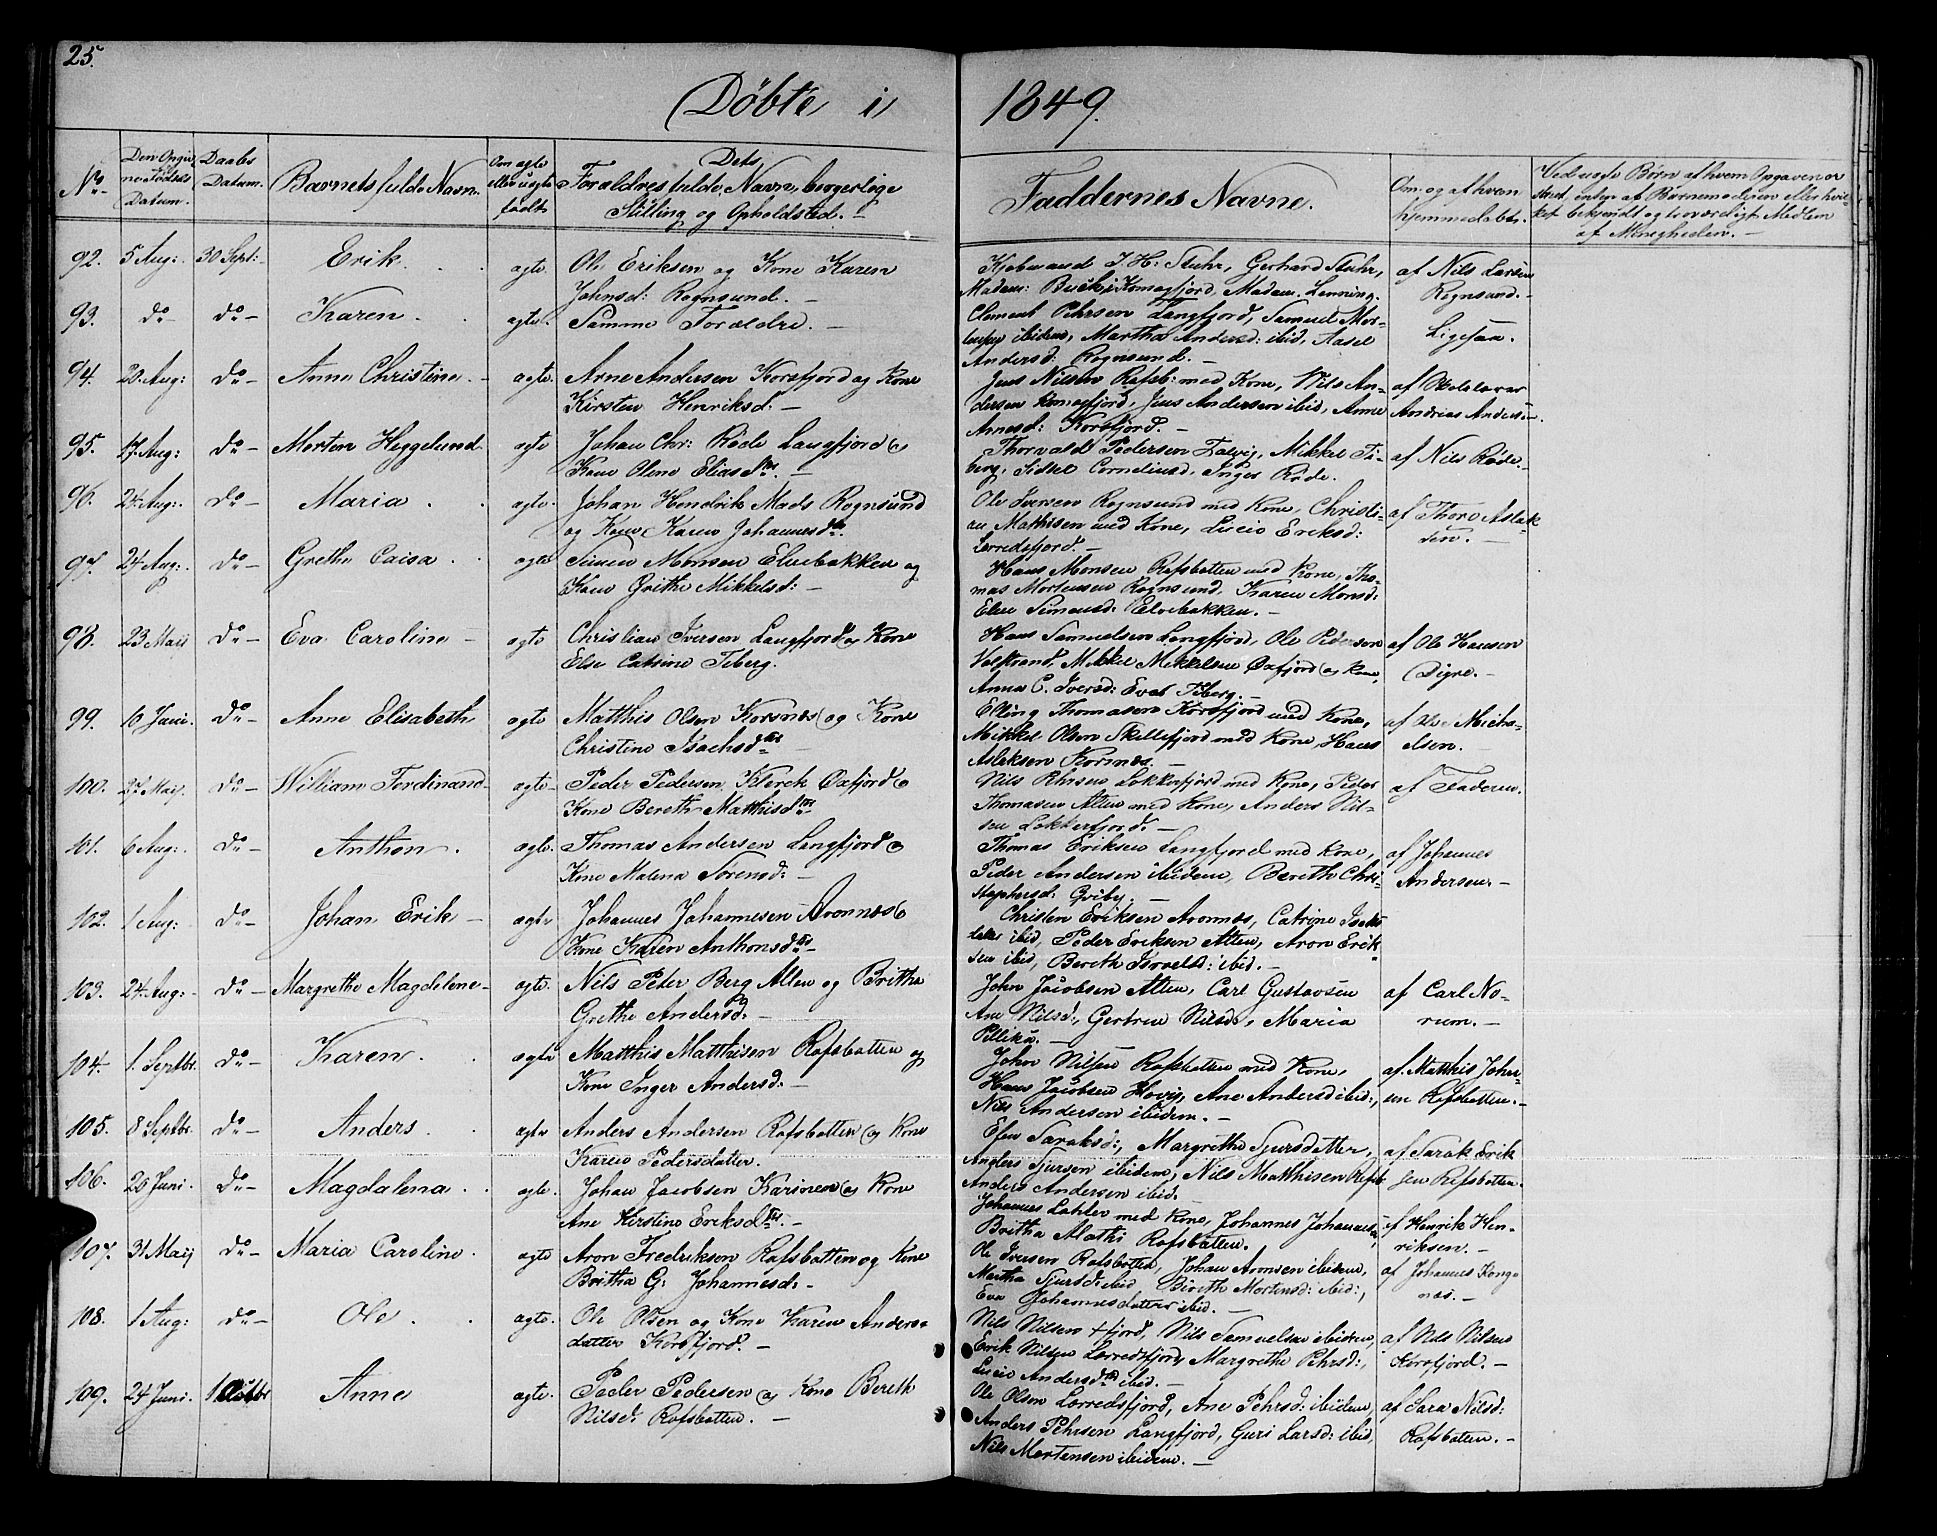 25.
Döbte i 1849.
No.
Den Opgivne Födsels Datum.
Daabs Datum.
Barnets fulde Navn.
Om ægte eller uægte födt.
Dets Forældres fulde Navne, borgerlige Stilling og Opholdsted. —
Faddernes Navne.
Om og af hvem hjemmedöbt.
Ved uægte Börn af hvem Opgaven er skeet, enten af Barnemoderen eller hvilket bekjendt og troværdigt Medlem af Menigheden. —
92. 5 Aug: 30 Sept: Erik. ægte Ole Eriksen og Kone Karen
Johnsd: Rognsund. —
Kjöbmand J. H: Stuhr, Gerhard Stuhr,
Madam: Buck, Komagfjord, Madam. Lenning.
af Nils Larsen
Rognsund. —
93. do do Karen. ægte. Samme Forældre. —
Clement Pehrsen Langfjord, Samuel Mor-
tensen ibidem, Martha Andersd: ibid, Aasel
Andersd: Rognsund. —
Ligesaa.
94. 20. Aug: do Anne Christine. ægte. Arne Andersen Korsfjord og Kone
Kirsten Henriksd: —
Jens Nilsen Rafsb: med Kone, Nils An-
dersen Komagfjord, Jens Andersen ibid, Anne
Arnesd: Korsfjord. —
af Skolelærer
Andrias Anders:
95. 17. Aug: do Morten Heggelund ægte Johan Chr: Röde Langfjord &
Kone Oline Eliasdtr. —
Thorvald Pedersen Talvig, Mikkel Ti-
berg, Sidsel Corneliusd, Inger Röde.
af Nils Röde. —
96. 24. Aug: do Maria. ægte. Johan Hendrik Mads Rognsund
og Kone Karen Johannesdtr.
Ole Iversen Rognsund med Kone, Christi-
an Mathisen med Kone, Lucie Eriksd:
Lerredsfjord. —
af Thore Aslak-
sen. —
97. 24 Aug: do Grethe Caisa. ægte Simen Monsen Elvebakken og
Kone Grethe Mikkelsd: —
Hans Monsen Rafsbotten med Kone, Tho-
mas Mortensen Rognsund, Karen Monsd:
Elen Simonsd: Elvebakken. —
98. 23 Maij do Eva Caroline — ægte Christian Iversen Langfjord & Kone
Else Catrine Tiberg.
Hans Samuelsen Langfjord, Ole Pedersen
Mikkel Mikkelsen Öxfjord og Kone,
Anna C. Iversd: Eva Tiberg. —
af Ole Hansen
Digre. —
99. 10 Juni. do Anne Elisabeth ægte Matthis Olsen Korsnæs og Kone
Christine Isachsdtr —
Elling Thomasen Korsfjord med Kone,
Mikkel Olsen Skillefjord med Kone, Hans
Aslaksen Korsnæs. —
af Ole Micha-
elsen. —
100. 27 Maij. do William Ferdinand ægte. Peder Pedersen Klerck Öxfjord &
Kone Bereth Matthisdtr
Nils Pehrsen Lokkerfjord med Kone, Peder
Thomasen Alten med Kone, Anders Nil-
sen Lokkerfjord. —
af Faderen.
101. 6 Aug: do Anthon. ægte. Thomas Andersen Langfjord &
Kone Malena Sörensd: —
Thomas Eriksen Langfjord med Kone,
Peder Andersen ibidem, Bereth Chri-
stophersd: Qviby. —
af Johannes
Andersen. —
102. 1 Aug: do Johan Erik — ægte Johannes Johannesen Aronnæs &
Kone Karen Anthonsdtr —
Christen Eriksen Aronnæs, Catrine Isaks-
datter ibid, Peder Eriksen Alten, Aron Erik-
sen ibid, Bereth Israelsd: ibid. —
103. 24. Aug: do Margrethe Magdalene — ægte. Nils Peter Berg Alten og Britha
Grethe Andersd: —
John Jacobsen Alten, Carl Gustavsen
Ane Nilsd:, Gertrue Nilsd:, Maria
Pillika. —
af Carl No-
rum. —
104. 1. Septbr. do Karen. ægte Matthis Matthisen Rafsbotten og
Kone Inger Andersd. —
John Nilsen Rafsbotten med Kone,
Hans Jacobsen Hovig, Ane Andersd ibid:,
Nils Andersen ibidem. —
af Matthis Johan-
sen Rafsbotten. —
105. 8 Septbr. do Anders. ægte Anders Andersen Rafsbotten og Kone
Karen Pedersdatter.
Efen Saraksd:, Margrethe Sjursdatter,
Anders Sjursen ibidem, Nils Matthisen Rafsb
Anders Andersen ibid.
af Sarak Erik
sen Rafsbotten.
106. 20 Juni. do Magdalena. ægte. Johan Jacobsen Karinen & Kone
Ane Kirstine Eriksdtr. —
Johannes Lahler med Kone, Johannes Johannes:
Britha Mathi Rafsbotten.
af Henrik Hen-
riksen. —
107. 31 Maij do Maria Caroline. ægte Aron Fredriksen Rafsbotten og Kone
Britha G: Johannesd: —
Ole Iversen Rafsbotten, Johan Aronsen ibidem,
Martha Sjursd: ibid, Bereth Mortensd: ibid:,
Eva Johannesdatter ibid. —
af Johannes Konge-
næs. —
108. 1 Aug: do Ole. ægte. Ole Olsen og Kone Karen Anders-
datter Korsfjord. —
Nils Nilsen +fjord, Nils Samuelsen ibidem,
Erik Nilsen Lerredsfjord, Margrethe Pehrsd:,
Lucie Andersdtr ibid. —
af Nils Nilsen
Korsfjord. —
109. 24 Juni. 1 Octbr Anne ægte. Peder Pedersen & Kone Bereth
Nilsd: Rafsbotten. —
Ole Olsen Lerredsfjord, Ane Pehrsd: ibidem,
Anders Pehrsen Langfjord, Guri Larsd: ibid,
Nils Mortensen ibidem. —
af Sara Nilsd:
Rafsbotten. —